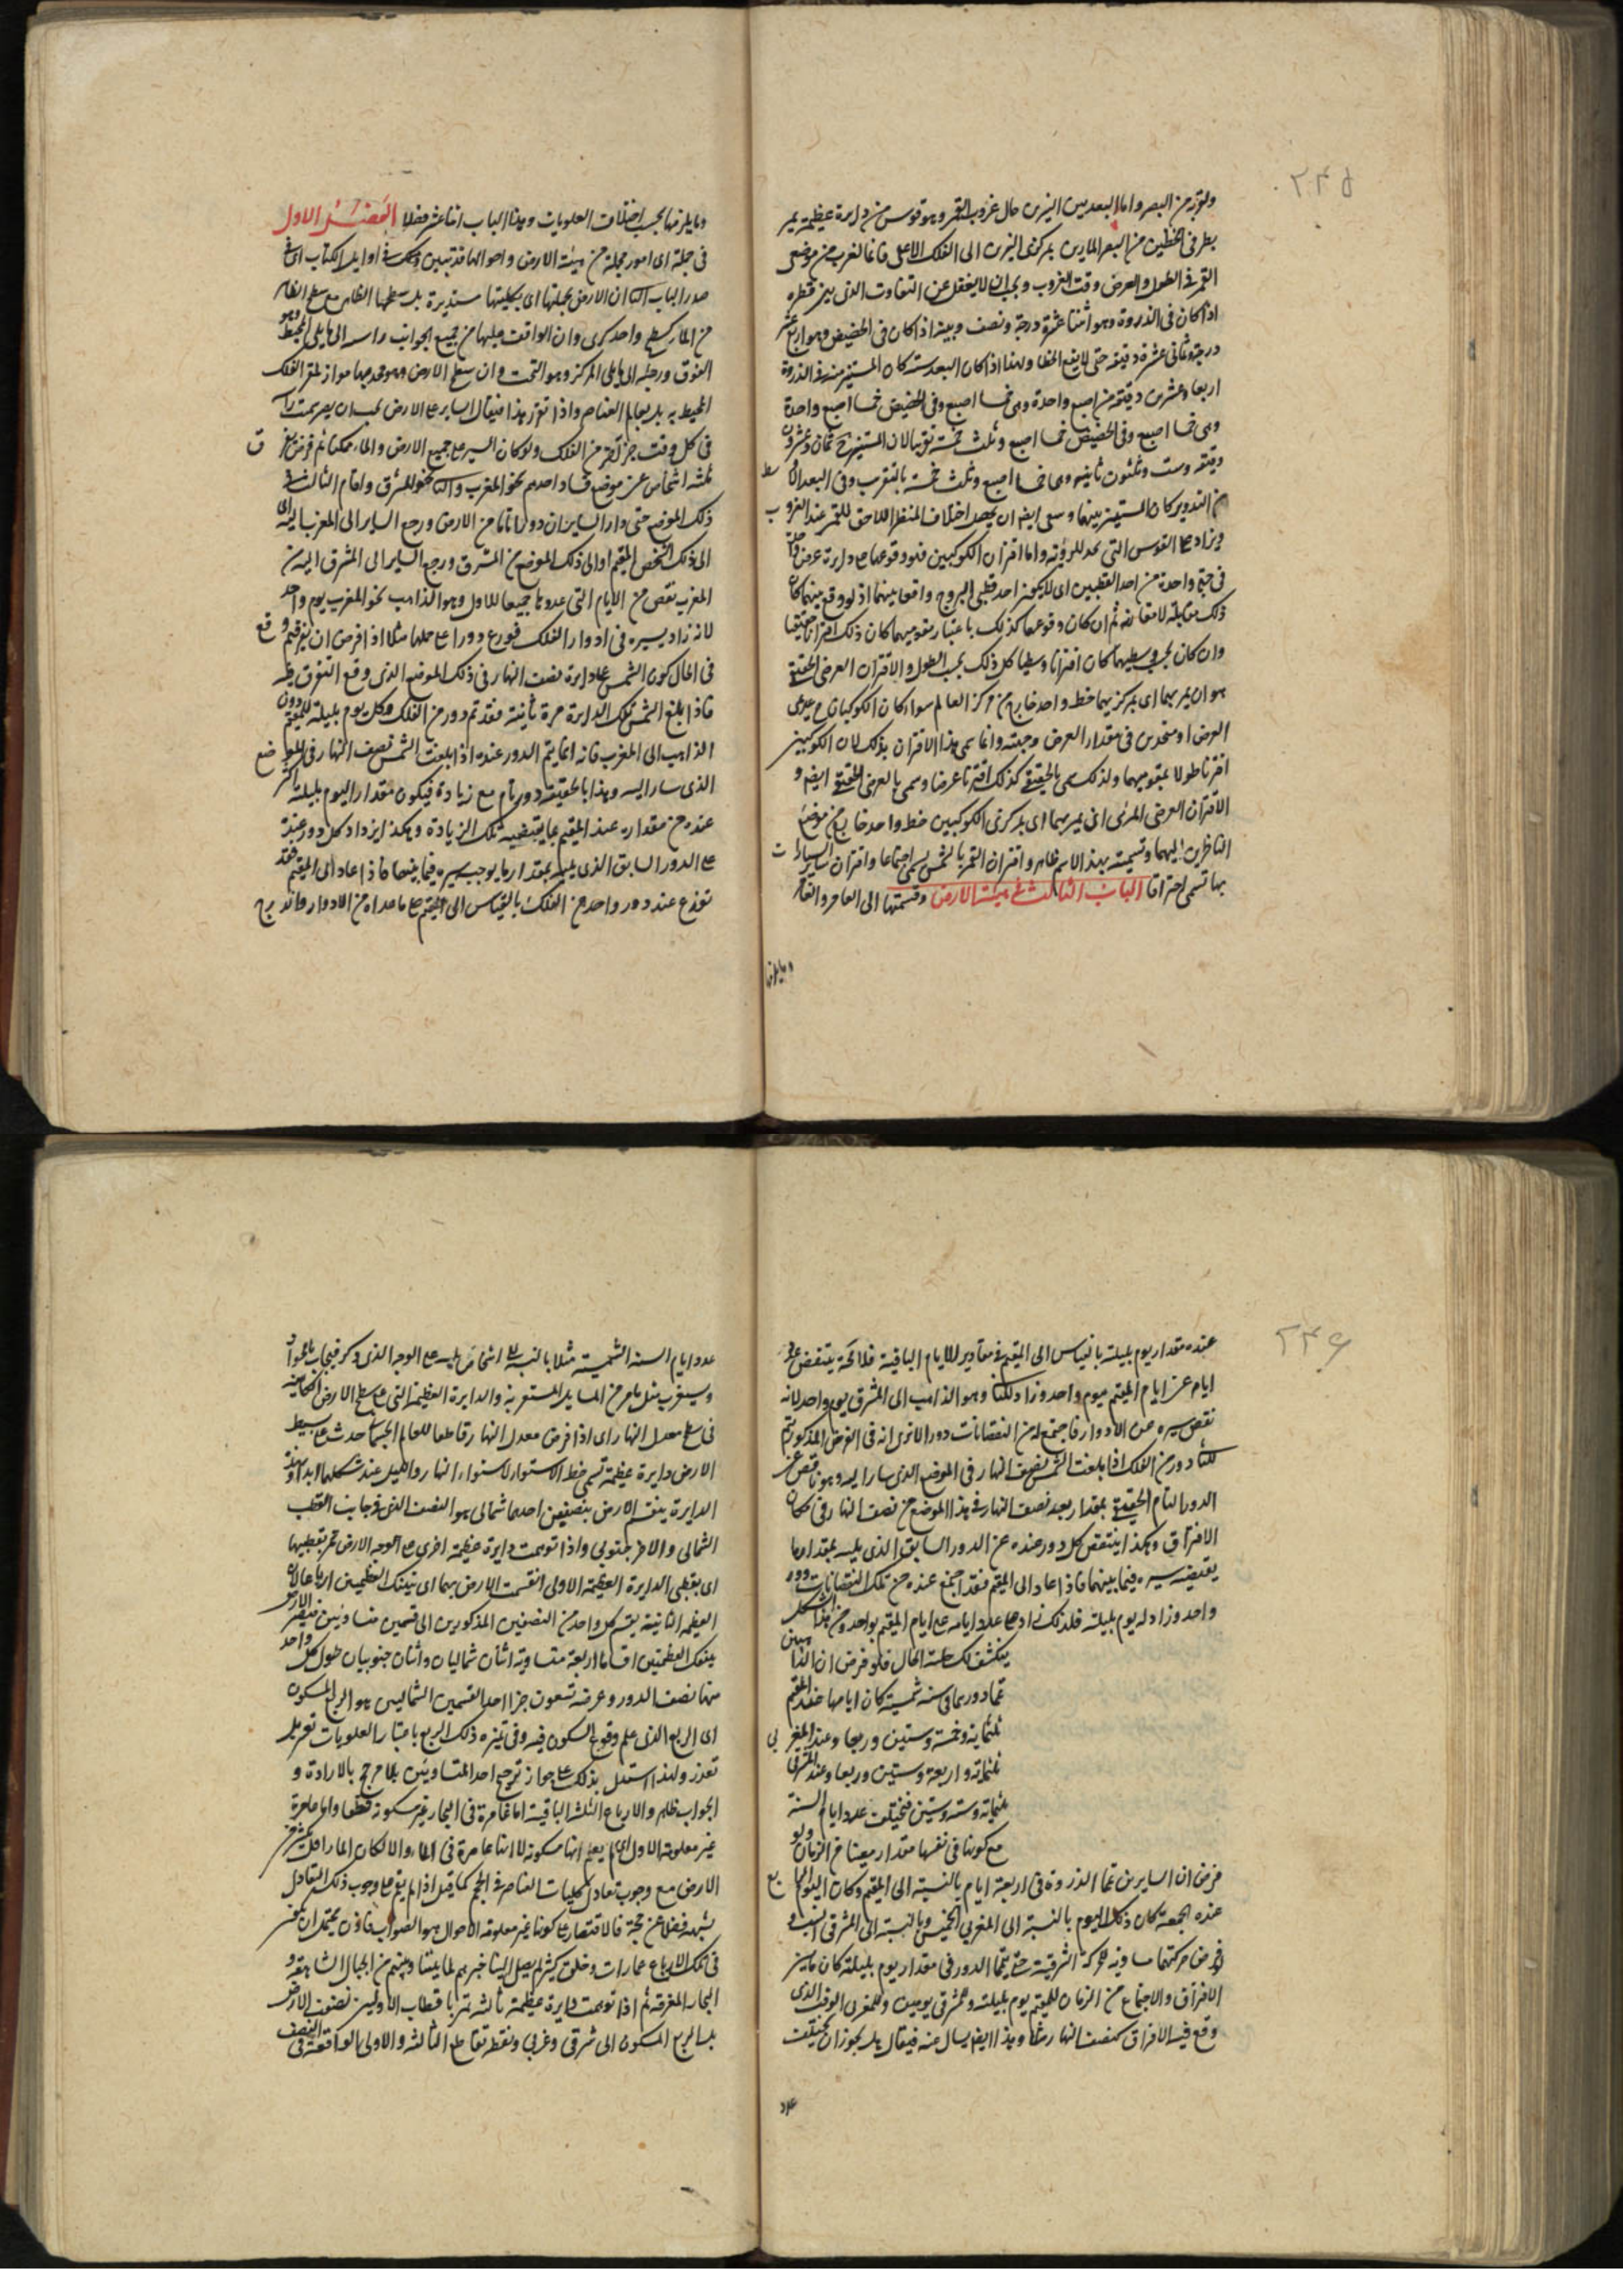 ٢٤٥
ولقربه من البصر واما البعد بين النيرين حال غروب القمر وهو قوس من دايرة عظيمة يمر
بطرفى الخطين من البصر المارين بمركزى النيرين الى الفلك الاعلى فانما لغرب من موضعى
القمر فى الطول والعرض وقت الغروب ويجب ان لا يغفل عن التفاوت الذى بين قطره
اذا كان فى الذروة وهو اثنتا عشرة درجة ونصف وبينه اذا كان فى الحضيض وهو اربع عشر
درجة وثمانى عشرة دقيقة حتى لا يقع الخطا ولهذا اذا كان البعد ستة كان المستنير منه فى الذروة
اربعا وعشرين دقيقة من اصبع واحدة وهى خمسا اصبع وفى الحضيض خمسا اصبع واحدة
وهى خمسا اصبع وفى الحضيض خمسا اصبع وثلث خمسة تقريبا لان المستنير ح ثمان وعشرون
دقيقة وست وثلثون ثانية وهى خمسا اصبع وثلث خمسة بالتقريب وفى البعد الاوسط
من التدوير كان المستنير بينهما وسعى ايضا ان يحصل اختلاف المنظر اللاحق للقمر عند الغروب
ويزاد على القوس التى بعد للرؤية واما اقتران الكوكبين فلو وقوعهما على دايرة عرض واحدة
فى جهة واحدة من احد القطبين اى لا يكون احد قطبى البروج واقعا بينهما اذ لو وقع بينهما كان
ذلك مقابلة لا مقارنة ثم ان كان وقوعهما كذلك باعتبار مقوميهما كان ذلك اقترانا حقيقيا
وان كان بحسب وسطيهما كان اقترانا وسطيا كل ذلك بحسب الطول والاقتران العرضى الحقيقى
هو ان يمر بهما اى بمركزيهما خط واحد خارج من مركز العالم سواء كان الكوكبان عديمى
العرض او متحدين فى مقدار العرض وجهته وانما سمى هذا الاقتران بذلك لان الكوكبين
اقترنا طولا بمقوميهما ولذلك سمى بالحقيقى كذلك اقترنا عرضا وسمى بالعرضى الحقيقى ايضا و
الاقتران العرضى المرئى ان يمر بهما اى بمركزى الكوكبين خط واحد خارج من موضع
الناظرين اليهما وتسميته بهذا الاسم ظاهر واقتران القمر بالشمس يسمى اجتماعا واقتران ساير السيارات
بها تسمى احتراقا الباب الثالث فى هيئة الارض وقسمتها الى العامر والغامر
وما يلزمها
وما يلزمها بحسب اختلاف العلويات وهذا الباب اثنا عشر فصلا الفصل الاول
فى جملة اى امور مجملة من هيئة الارض واحوالها قد تبين ذلك فى اوايل الكتاب اى فى
صدر الباب الثانى ان الارض بجملتها اى بكليتها مستديرة بل سطحها الظاهر مع سطح الظاهر
من الماء كسطح واحد كرى وان الواقف عليها من جميع الجوانب راسه الى ما يلى المحيط وهو
الفوق ورجله الى ما يلى المركز وهو التحت وان سطح الارض وهو محدبها مواز لمقعر الفلك
المحيط به بل بعالم العناصر واذا تقرر هذا فيقال الساير على الارض يجب ان يصير سمت راسه
فى كل وقت جزأ اخر من الفلك ولو كان السير على جميع الارض والماء ممكنا ثم فرض تفرق
ثلثه اشخاص عن موضع فسار احدهم نحو المغرب والثانى نحو المشرق واقام الثالث فى
ذلك الموضع حتى دار السايران دورا تاما من الارض ورجع الساير الى المغرب اليه اى
الى ذلك الشخص المقيم او الى ذلك الموضع من المشرق ورجع الساير الى المشرق اليه من
المغرب نقص من الايام التى عدوها جميعا للاول وهو الذاهب نحو المغرب يوم واحد
لانه زاد بسيره فى ادوار الفلك فوزع دورا على جملها مثلا اذا افرض ان تفرقهم وقع
فى الحال كون الشمس على دايرة نصف النهار فى ذلك الموضع الذى وقع التفرق فيه
فاذا بلغ الشمس تلك الدايرة مرة ثانية فقد تم دور من الفلك وكل يوم بليلته للمقيم دون
الذاهب الى المغرب فانه انما يتم الدور عنده اذا بلغت الشمس نصف النهار فى الموضع
الذى سار اليه وهذا بالحقيقة دور تام مع زيادة فيكون مقدار اليوم بليلته اكثر
عنده من مقداره عند المقيم بما يقتضيه تلك الزيادة وهكذا يزداد كل دور عنده
على الدور السابق الذى يليه بمقدار ما يوجب سيره فيما بينهما فاذا عاد الى المقيم فقد
توزع عنده دور واحد من الفلك بالقياس الى المقيم على ما عداه من الادوار واندرج
٢٤٦
عنده مقدار يوم بليلته بالقياس الى المقيم فى مقادير الايام الباقية فلا محة ينقص عدد
ايام عن ايام المقيم بيوم واحد وزاد للثانى وهو الذاهب الى المشرق يوم واحد لانه
نقص بسيره من الادوار فاجتمع له من النقصانات دور الا ترى انه فى الفرض المذكور يتم
للثانى دور من الفلك اذا بلغت الشمس نصف النهار فى الموضع الذى سار اليه وهو ناقص عن
الدور التام الحقيقى بمقدار بعد نصف النهار فى هذا الموضع من نصف النهار فى مكان
الافتراق وهكذا ينتقص كل دور عنده عن الدور السابق الذى يليه بمقدار ما
يقتضيه سيره فيما بينهما فاذا عاد الى المقيم فقد اجتمع عنده من تلك النقصانات دور
واحد وزاد له يوم بليلته فلذلك زاد على عدد ايامه على ايام المقيم بواحد ومن هذا الشكل
ينكشف لك جلية الحال فلو فرض ان الذاهبين
تما دوريهما فى سنة شمسية كان ايامها عند المقيم
ثلثماية وخمسة وستين وربعا وعند المغربى
ثلثماية واربعة وستين وربعا وعند المشرقى
ثلثماية وستة وستين فيختلف عدد ايام السنة
مع كونها فى نفسها مقدارا معينا من الزمان ولو
فرض ان السايرين تما الدورة فى اربعة ايام بالنسبة الى المقيم وكان اليوم الرابع
عنده الجمعة كان ذلك اليوم بالنسبة الى المغربى الخميس وبالنسبة الى المشرقى السبت و
لو فرض حركتهما مساوية للحركة الشرقية حتى يتما الدور فى مقدار يوم بليلته كان ما بين
الافتراق والاجتماع من الزمان للمقيم يوم بليلته وللمشرقى يومين وللمغربى الوقت الذى
وقع فيه الافتراق كنصف النهار مثلا وهذا ايضا يسال عنه فيقال هل يجوز ان يختلف
عدد
عدد ايام السنة الشمسية مثلا بالنسبة الى اشخاص ثلثه على الوجه الذى ذكر فيجاب بالجواز
وسيغرب مثل ما مر من المسايل المستغربة والدايرة العظيمة التى على سطح الارض الكاينة
فى سطح معدل النهار اى اذا فرض معدل النهار قاطعا للعالم الجسمانى حدث على بسيط
الارض دايرة عظيمة تسمى خط الاستواء لاستواء النهار والليل عند سكانها ابدا وبهذه
الدايرة ينقسم الارض بنصفين احدهما شمالى هو النصف الذى فى جانب القطب
الشمالى والاخر جنوبى واذا توهمت دايرة عظيمة اخرى على وجه الارض تمر بقطبيها
اى بقطبى الدايرة العظيمة الاولى انقسمت الارض بهما اى بتينك العظيمتين ارباعا لان
العظيمة الثانية يقسم كل واحد من النصفين المذكورين الى قسمين متساويين فيصير الارض
بتينك العظيمتين اقساما اربعة متساوية اثنان شماليان واثنان جنوبيان طول كل واحد
منها نصف الدور وعرضه تسعون جزا احد القسمين الشماليين هو الربع المسكون
اى الربع الذى علم وقوع السكون فيه وفى تميزه ذلك الربع باعتبار العلويات تعسر بل
تعذر ولهذا استدل بذلك على جواز ترجيح احد المتساويين بلا مرجح بالارادة و
الجواب ظاهر والارباع الثلثة الباقية اما غامرة فى البحار غير مسكونة قطعا واما عامرة
غير معلومة الاحوال اى لم يعلم انها مسكونة لا انها غامرة فى الماء والا لكان الماء اكثر من
الارض مع وجوب تعادل كليات العناصر فى الحجم كما قيل اذا لم يقم على وجوب ذلك التعادل
شبهة فضلا عن حجة فالاقتصار على كونها غير معلومة الاحوال هو الصواب فاذن يحتمل ان يكون
فى تلك الارباع عمارات وخلق كثير لم يصل الينا خبرهم لما بيننا وبينهم من الجبال الشاهقة و
البحار المغرقة ثم اذا توهمت دايرة عظيمة ثالثة تمر باقطاب الاوليين نصفت الارض
بل الربع المسكون الى شرقى وغربى ونقطة تقاطع الثالثة والاولى الواقعة فى النصف